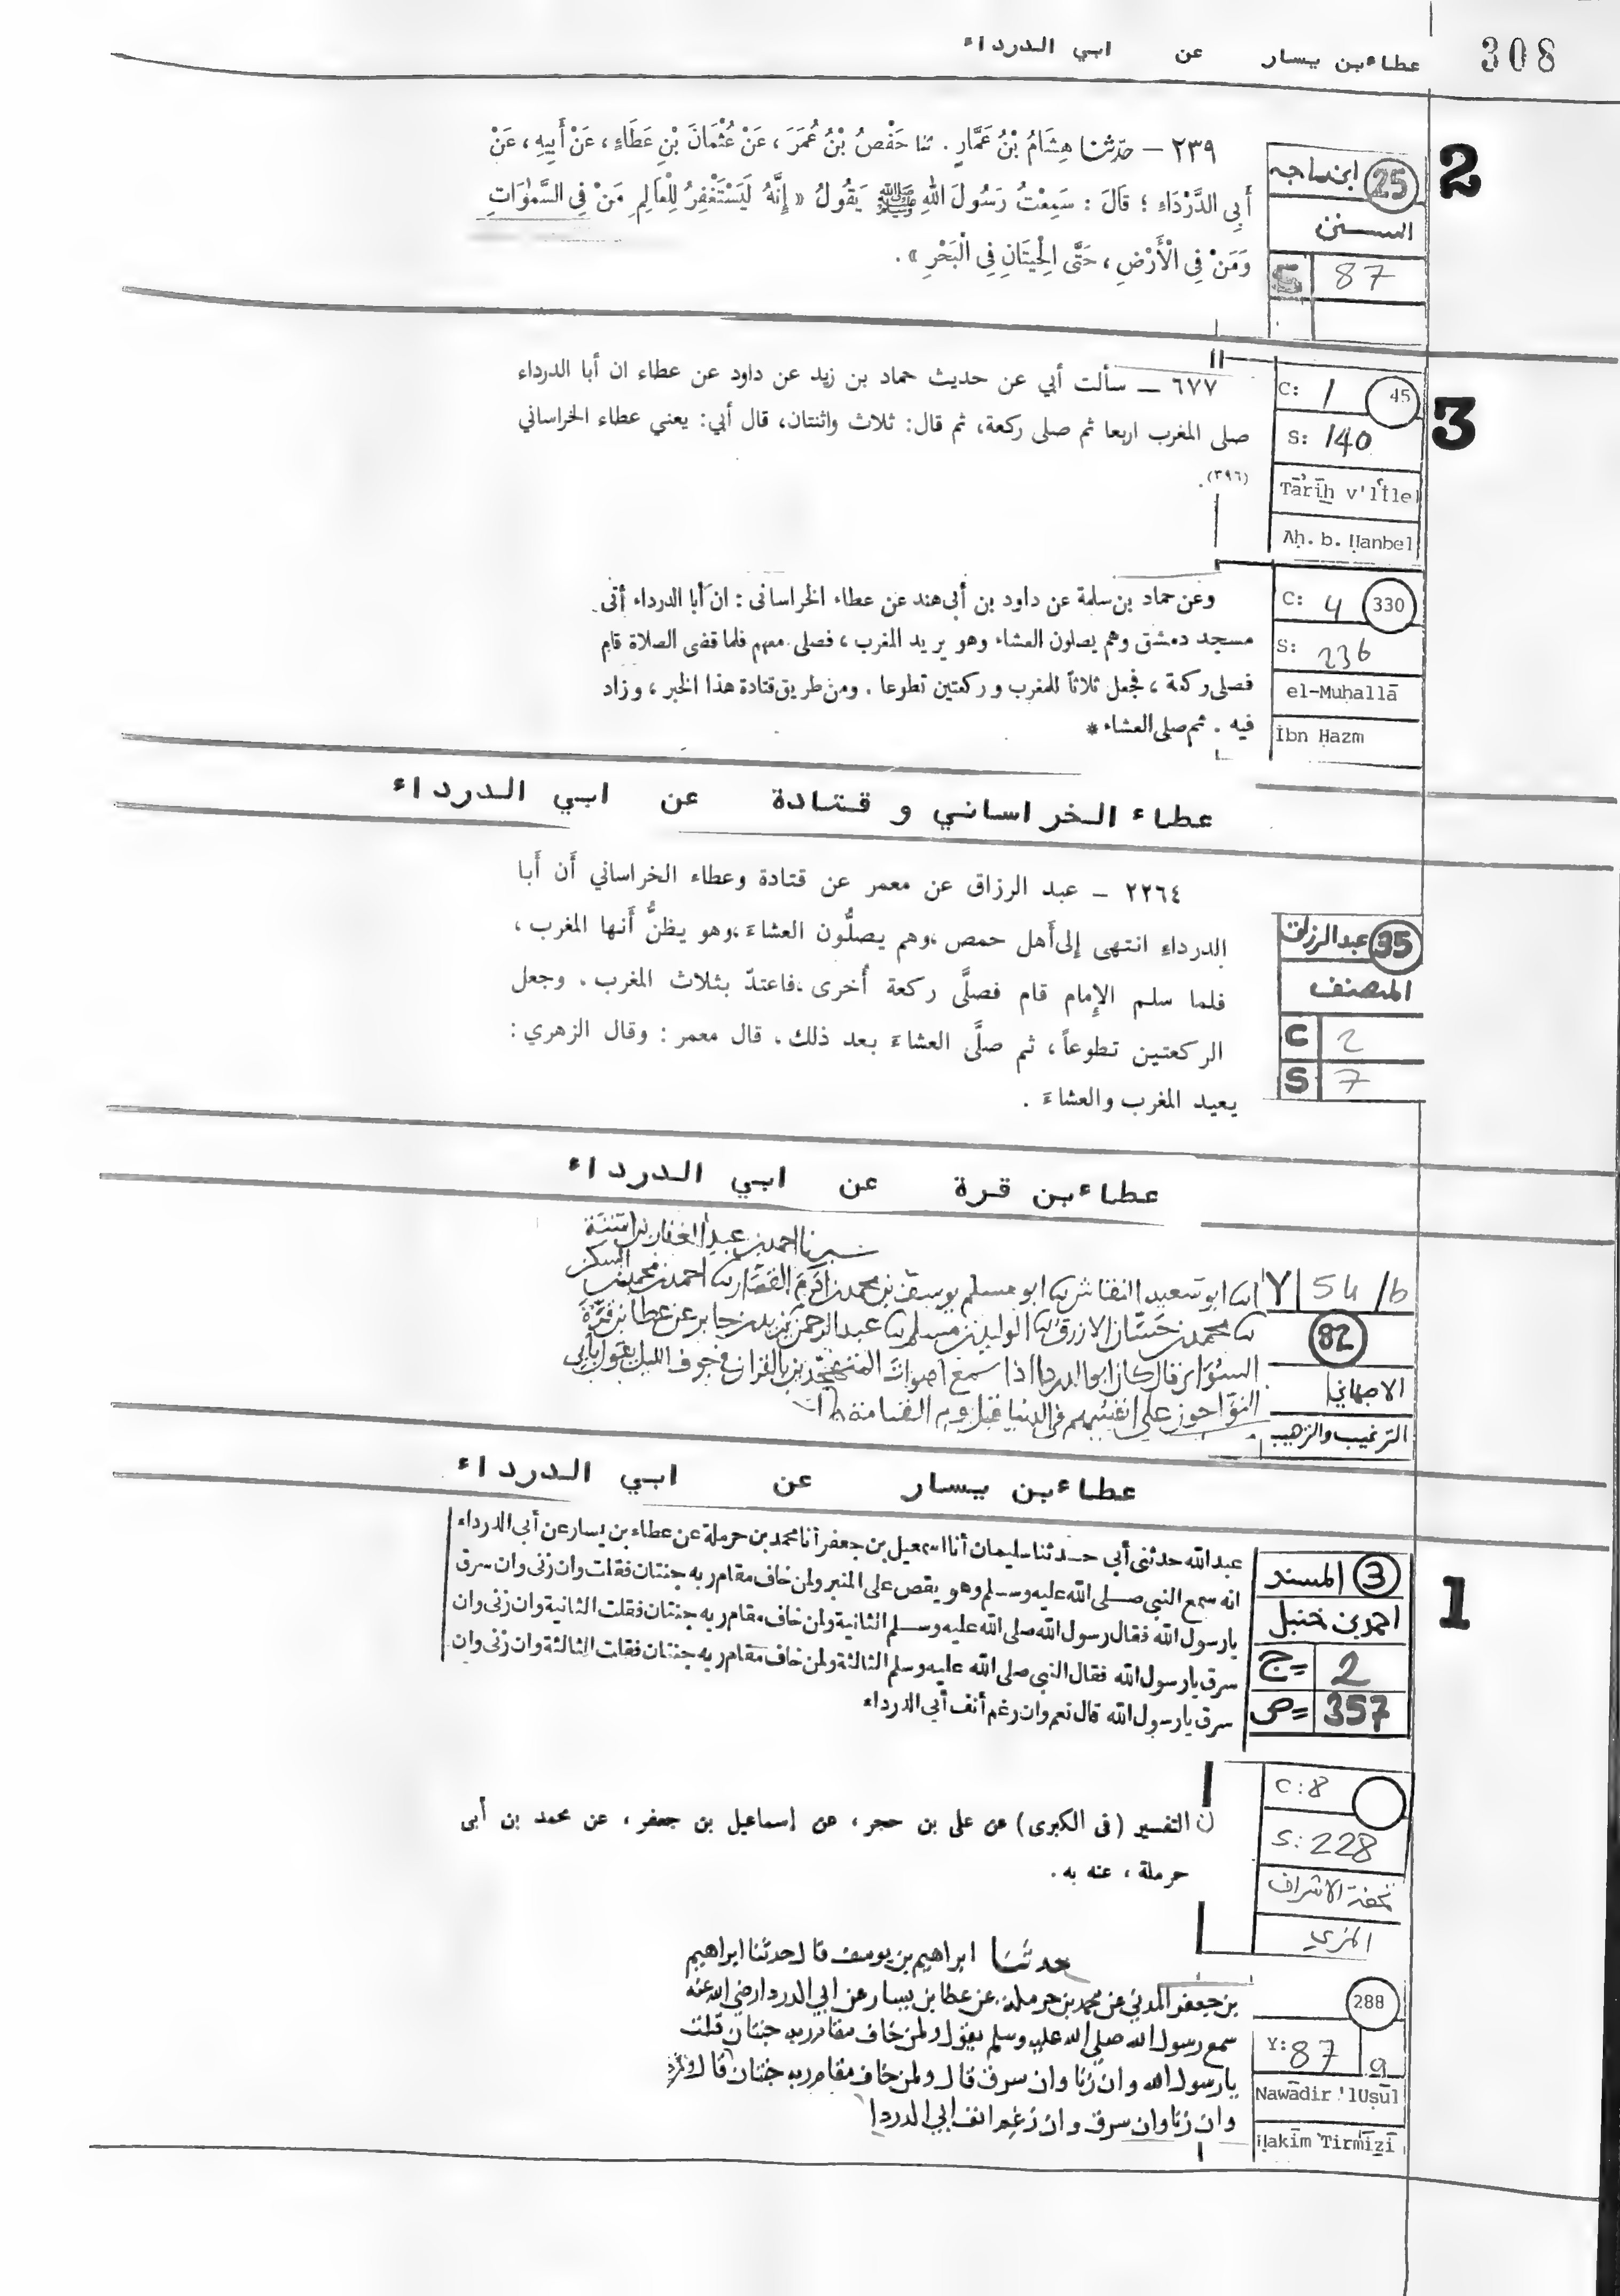 308
عطاء بن يسار عن ابي الدرداء
2
ابن ماجه 25
السنن
S 87
٢٣٩ – حدّثنا هِشَامُ بْنُ عَمَّارٍ . ثنا حَفْصُ بْنُ عُمَرَ ، عَنْ عُثْمَانَ بْنِ عَطَاءٍ ، عَنْ أَبِيهِ ، عَنْ
أَبِي الدَّرْدَاءِ ؛ قَالَ : سَمِعْتُ رَسُولَ اللهِ ﷺ يَقُولُ « إِنَّهُ لَيَسْتَغْفِرُ لِلْعَالِمِ مَنْ فِي السَّمٰوَاتِ
وَمَنْ فِي الْأَرْضِ ، حَتَّى الْحِيتَانِ فِي الْبَحْرِ » .
3
C: 1 45
S: 140
Tārīḫ v'l'İlel
Aḥ. b. Ḥanbel
٦٧٧ ــ سألت أبي عن حديث حماد بن زيد عن داود عن عطاء ان أبا الدرداء
صلى المغرب اربعا ثم صلى ركعة، ثم قال: ثلاث واثنتان، قال أبي: يعني عطاء الخراساني
(٣٩٦).
C: 4 330
S: 236
el-Muḥallā
İbn Ḥazm
وعن حماد بن سلمة عن داود بن أبى هند عن عطاء الخراسانى : ان أبا الدرداء أتى
مسجد دمشق وهم يصلون العشاء وهو يريد المغرب ، فصلى معهم فلما قضى الصلاة قام
فصلى ركعة ، فجعل ثلاثاً للمغرب وركعتين تطوعا . ومن طريق قتادة هذا الخبر ، وزاد
فيه . ثم صلى العشاء *
عطاء الخراساني و قتادة عن ابي الدرداء
35 عبدالرزاق
المصنف
C 2
S 7
٢٢٦٤ – عبد الرزاق عن معمر عن قتادة وعطاء الخراساني أن أبا
الدرداءِ انتهى إلى أَهل حمص ، وهم يصلُّون العشاءَ ، وهو يظنُّ أَنها المغرب ،
فلما سلم الإِمام قام فصلَّى ركعة أُخرى ، فاعتدّ بثلاث المغرب . وجعل
الركعتين تطوعاً ، ثم صلَّى العشاءَ بعد ذلك . قال معمر : وقال الزهري :
يعيد المغرب والعشاءَ .
عطاء بن قرة عن ابي الدرداء
Y 54/b
82
الاصبهاني
الترغيب والترهيب
احمد بن عبد الغفار بن اشتة
ابو سعيد النقاش ابو مسلم يوسف بن محمد بن القصار احمد بن محمد بن السكن
محمد بن حسان الازرق الوليد بن مسلم عبد الرحمن بن يزيد بن جابر عن عطا بن قرة
قال كان ابو الدردا اذا سمع اصوات المتهجدين بالقران في جوف الليل يقول بابي
النواحون على انفسهم في الدنيا قبل يوم القيامة
عطاء بن يسار عن ابي الدرداء
1
3 المسند
احمد بن حنبل
ج= 2
ص= 357
عبد الله حدثنى أبي حـدثنا سليمان أنا اسمعيل بن جعفر أنا محمد بن حرملة عن عطاء بن يسار عن أبي الدرداء
انه سمع النبي صلى الله عليه وسلم وهو يقص على المنبر ولمن خاف مقام ربه جنتان فقلت وان زنى وان سرق
يا رسول الله فقال رسول الله صلى الله عليه وسلم الثانية ولمن خاف مقام ربه جنتان فقلت الثانية وان زنى وان
سرق يا رسول الله فقال النبي صلى الله عليه وسلم الثالثة ولمن خاف مقام ربه جنتان فقلت الثالثة وان زنى وان
سرق يا رسول الله قال نعم وان رغم أنف أبي الدرداء
C: 8
S: 228
تحفة الاشراف
المزي
ن التفسير (فى الكبرى) عن على بن حجر ، عن إسماعيل بن جعفر ، عن محمد بن أبى
حرملة ، عنه به .
288
Y: 87 a
Nawādir 'lUṣūl
Ḥakīm Tirmīẕī
حدثنا ابراهيم بن يوسف قال حدثنا ابراهيم
بن جعفر المدني عن محمد بن حرملة عن عطا بن يسار عن ابي الدردا رضي الله عنه
سمع رسول الله صلى الله عليه وسلم يقول ولمن خاف مقام ربه جنتان قلت
يا رسول الله وان زنا وان سرق قال ولمن خاف مقام ربه جنتان قال
وان زنا وان سرق وان رغم انف ابي الدردا